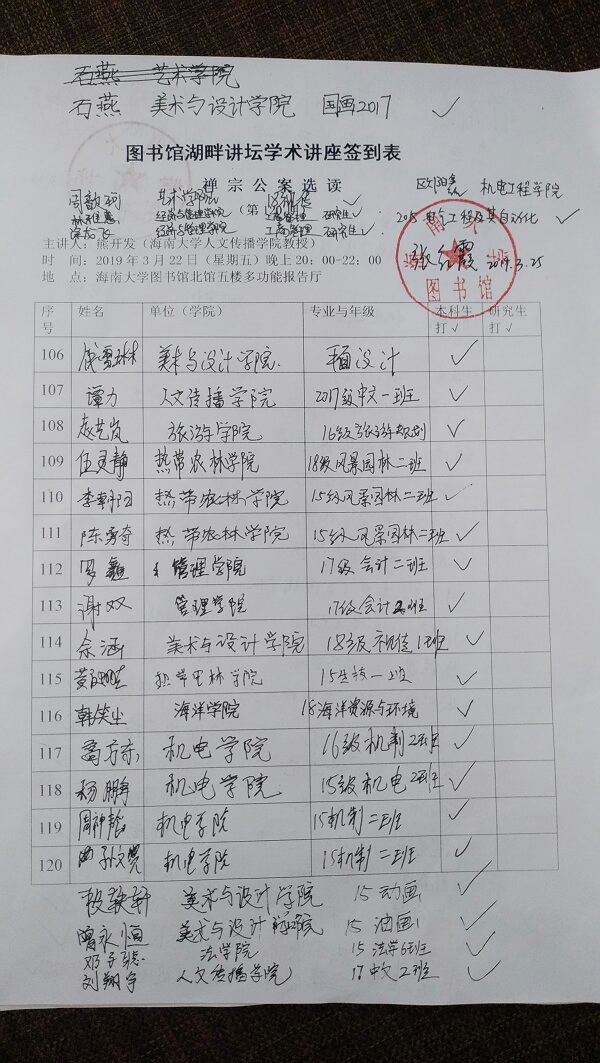 石燕 艺术学院
石燕 美术与设计学院 国画2017 ✓
图书馆湖畔讲坛学术讲座签到表
禅宗公案选读
机电工程学院
艺术学院
经济与管理学院 (第 研究生 ✓ 2015 电气工程及其自动化 ✓
经济与管理学院 工商管理 研究生 ✓
主讲人：熊开发（海南大学人文传播学院教授）
时 间：2019年3月22日（星期五）晚上20：00-22：00 2019.3.25
地 点：海南大学图书馆北馆五楼多功能报告厅
图书馆
序号 姓名 单位（学院） 专业与年级 本科生打√ 研究生打√
106 美术与设计学院 平面设计 ✓
107 谭力 人文传播学院 2017级中文一班 ✓
108 袁艺岚 旅游学院 16级旅游规划 ✓
109 伍灵静 热带农林学院 18级风景园林二班 ✓
110 热带农林学院 15级风景园林二班 ✓
111 陈勇奇 热带农林学院 15级风景园林二班 ✓
112 罗 管理学院 17级会计二班 ✓
113 谢双 管理学院 17级会计2班 ✓
114 佘涵 美术与设计学院 18级视传1班 ✓
115 热带农林学院 15生技一班 ✓
116 韩笑尘 海洋学院 18海洋资源与环境 ✓
117 机电学院 16级机制2班 ✓
118 杨鹏 机电学院 15级机电2班 ✓
119 机电学院 15机制二班 ✓
120 机电学院 15机制二班 ✓
美术与设计学院 15动画 ✓
曾永恒 美术与设计学院 15油画 ✓
法学院 15法学6班 ✓
刘翔宇 人文传播学院 17中文2班 ✓